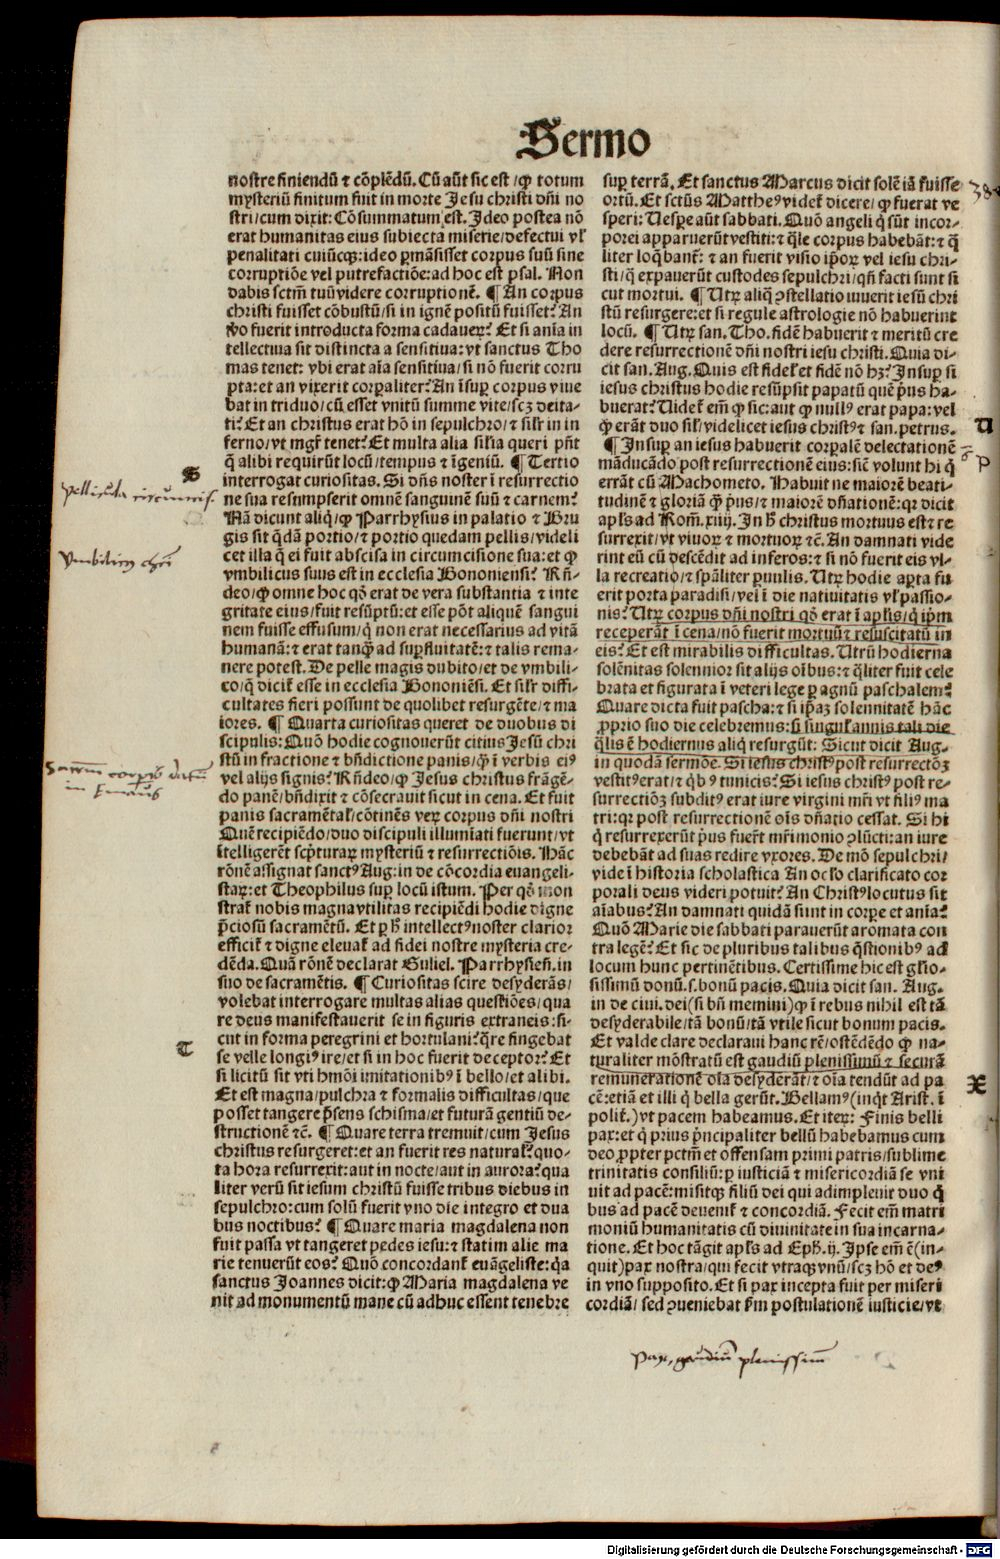 Sermo
nostre finiendū ⁊ cōplēdū. Cū aūt sic est / ꝙ totum
mysteriū finitum fuit in morte Jesu christi dn̄i no
stri / cum dixit: Cōsummatum est. Ideo postea nō
erat humanitas eius subiecta miserie / defectui vl̕
penalitati cuiūcqꝫ: ideo ꝑmāsisset corpus suū sine
corruptiōe vel putrefactiōe: ad hoc est psal. Non
dabis sctm̄ tuū videre corruptionē. ¶ An corpus
christi fuisset cōbustū / si in ignē positū fuisset? An
v̊o fuerit introducta forma cadaueꝝ? Et si anīa in
tellectiua sit distincta a sensitiua: vt sanctus Tho
mas tenet: vbi erat aīa sensitiua / si nō fuerit corru
pta: et an vixerit corꝑaliter? An īsuꝑ corpus viue
bat in triduo / cū esset vnitū summe vite / scꝫ deita-
ti? Et an christus erat hō in sepulchro / ⁊ sil̕r in in
ferno / vt mgr̄ tenet? Et multa alia sil̕ia queri pn̄t
q̄ alibi requirūt locū / tempus ⁊ īgeniū. ¶ Tertio
S
interrogat curiositas. Si dn̄s noster ī resurrectio
pellicula circumcis.
ne sua resumpserit omnē sanguinē suū ⁊ carnem?
Nā dicunt aliq̄ / ꝙ Parrhysius in palatio ⁊ Bru
gis sit q̄dā portio / ⁊ portio quedam pellis / videli
cet illa q̄ ei fuit abscisa in circumcisione sua: et ꝙ
vmbilicꝰ chri
vmbilicus suus est in ecclesia Bononiensi? Rn̄-
deo / ꝙ omne hoc qō erat de vera substantia ⁊ inte
gritate eius / fuit resūptū: et esse pōt aliquē sangui
nem fuisse effusum / q̄ non erat necessarius ad vitā
humanā: ⁊ erat tanqꝫ ad suꝑfluitatē: ⁊ talis rema-
nere potest. De pelle magis dubito / et de vmbili-
co / q̄ dicit̄ esse in ecclesia Bononiēsi. Et sil̕r diffi-
cultates fieri possunt de quolibet resurgēte / ⁊ ma
iores. ¶ Quarta curiositas queret de duobus di
scipulis: Quō hodie cognouerūt citius Jesū chri
Sacrm̄ corporis datū
stū in fractione ⁊ bn̄dictione panis / ꝙ ī verbis eiꝰ
in Emaus
vel alijs signis? Rn̄deo / ꝙ Jesus christus frāgē-
do panē / bn̄dixit ⁊ cōsecrauit sicut in cena. Et fuit
panis sacramētal̕ / cōtinēs veꝝ corpus dn̄i nostri
Quē recipiēdo / duo discipuli illumīati fuerunt / vt
ītelligerēt scp̄turaꝝ mysteriū ⁊ resurrectiōis. Hāc
rōnē assignat sanctꝰ Aug: in de cōcordia euangeli-
staꝝ: et Theophilus suꝑ locū istum. Per qō mon
strat̄ nobis magna vtilitas recipiēdi hodie digne
p̄ciosū sacramētū. Et ꝑ h̄ intellectꝰ noster clarior
efficit̄ ⁊ digne eleuat̄ ad fidei nostre mysteria cre-
dēda. Quā rōnē declarat Guliel. Parrhysieñ. in
suo de sacramētis. ¶ Curiositas scire desyderās /
volebat interrogare multas alias questiōes / qua
re deus manifestauerit se in figuris extraneis: si-
cut in forma peregrini et hortulani? q̄re fingebat
T
se velle longiꝰ ire / et si in hoc fuerit deceptor? Et
si licitū sit vti hmōi imitationibꝰ ī bello / et alibi.
Et est magna / pulchra ⁊ formalis difficultas / que
posset tangere p̄sens schisma / et futurā gentiū de-
structionē ⁊c̄. ¶ Quare terra tremuit / cum Jesus
christus resurgeret: et an fuerit res natural̕? quo-
ta hora resurrexit: aut in nocte / aut in aurora? qua
liter verū sit iesum christū fuisse tribus diebus in
sepulchro: cum solū fuerit vno die integro et dua
bus noctibus? ¶ Quare maria magdalena non
fuit passa vt tangeret pedes iesu: ⁊ statim alie ma
rie tenuerūt eos? Quō concordant̄ euāgeliste: q̄a
sanctus Joannes dicit: ꝙ Maria magdalena ve
nit ad monumentū mane cū adhuc essent tenebre
suꝑ terrā. Et sanctus Marcus dicit solē iā fuisse
38
ortū. Et sctūs Mattheꝰ videt̄ dicere / ꝙ fuerat ve
speri: Vespe aūt sabbati. Quō angeli q̄ sūt incor-
porei apparuerūt vestiti: ⁊ q̄le corpus habebāt: ⁊ q̄
liter loq̄bant̄: ⁊ an fuerit visio ip̄oꝝ vel iesu chri-
sti / q̄ expauerūt custodes sepulchri / qn̄ facti sunt si
cut mortui. ¶ Vtꝝ aliq̄ ꝯstellatio iuuerit iesū chri
stū resurgere: et si regule astrologie nō habuerint
locū. ¶ Vtꝝ san. Tho. fidē habuerit ⁊ meritū cre
dere resurrectionē dn̄i nostri iesu christi. Quia di-
cit san. Aug. Quis est fidel̕ et fidē nō hꝫ? Insuꝑ si
iesus christus hodie resūpsit papatū quē p̄us ha-
buerat? Videt̄ em̄ ꝙ sic: aut ꝙ nullꝰ erat papa: vel
U
ꝙ erāt duo sil̕ / videlicet iesus christꝰ ⁊ san. petrus.
¶ Insuꝑ an iesus habuerit corꝑalē delectationē
māducādo post resurrectionē eius: sic̄ volunt hi q̄
errāt cū Machometo. Habuit ne maiorē beati-
tudinē ⁊ gloriā ꝙ p̄us / ⁊ maiorē dn̄ationē: qꝛ dicit
apl̕s ad Rom̄. xiiij. In h̄ christus mortuus est ⁊ re
surrexit / vt viuoꝝ ⁊ mortuoꝝ ⁊c̄. An damnati vide
rint eū cū descēdit ad inferos: ⁊ si nō fuerit eis vl-
la recreatio / ⁊ spāliter ꝑuulis. Vtꝝ hodie aꝑta fu
erit porta paradisi / vel ī die natiuitatis vl̕ passio-
nis? Vtꝝ corpus dn̄i nostri qō erat ī apl̕is / q̄ ip̄m
receperāt ī cena / nō fuerit mortuū ⁊ resuscitatū in
eis? Et est mirabilis difficultas. Vtrū hodierna
solēnitas solennior sit alijs oībus: ⁊ q̄liter fuit cele
brata et figurata ī veteri lege ꝑ agnū paschalem?
Quare dicta fuit pascha: ⁊ si ip̄aꝫ solennitatē hāc
ꝓprio suo die celebremus: ⁊ singul̕ annis tali die
q̄lis ē hodiernus aliq̄ resurgūt: Sicut dicit Aug.
in quodā sermōe. Si iesus christꝰ post resurrectōꝫ
vestitꝰ erat / ⁊ q̄bꝰ tunicis? Si iesus christꝰ post re-
surrectiōꝫ subditꝰ erat iure virgini mr̄i vt filiꝰ ma
tri: qꝛ post resurrectionē oīs dn̄atio cessat. Si hi
q̄ resurrexerūt p̄us fuer̄t mr̄imonio ꝯiūcti: an iure
debebāt ad suas redire vxores. De mō sepulchri /
vide ī historia scholastica An oculo clarificato cor
porali deus videri potuit? An Christꝰ locutus sit
aīabus? An damnati quidā sunt in corꝑe et anīa?
Quō Marie die sabbati parauerūt aromata con
tra legē? Et sic de pluribus talibus q̄stionibꝰ ad
locum hunc pertinētibus. Certissime hic est glio-
sissimū donū. s. bonū pacis. Quia dicit san. Aug.
in de ciui. dei (si bn̄ memini) ꝙ ī rebus nihil est tā
desyderabile / tā bonū / tā vtile sicut bonum pacis.
Et valde clare declaraui hanc rē / ostēdēdo ꝙ na-
turaliter mōstratū est gaudiū plenissimū ⁊ securā
X
remunerationē oīa desyderāt / ⁊ oīa tendūt ad pa
cē: etiā et illi q̄ bella gerūt. Bellamꝰ (inq̄t Arist. ī
polit̄.) vt pacem habeamus. Et iteꝝ: Finis belli
pax: et q̄ prius p̄ncipaliter bellū habebamus cum
deo ꝓpter pctm̄ et offensam primi patris / sublime
trinitatis consiliū: ꝑ iusticiā ⁊ misericordiā se vni
uit ad pacē: misitqꝫ filiū dei qui adimpleuit duo q̄
bus ad pacē deuenit̄ ⁊ concordiā. Fecit em̄ matri
moniū humanitatis cū diuinitate in sua incarna-
tione. Et hoc tāgit apl̕s ad Eph̄. ij. Ipse em̄ ē (in-
quit) pax nostra / qui fecit vtraqꝫ vnū / scꝫ hō et deꝰ
in vno supposito. Et si pax incepta fuit per miseri
cordiā / sed ꝯueniebat ẜm postulationē iusticie / vt
pax, gaudiū plenissimū
Digitalisierung gefördert durch die Deutsche Forschungsgemeinschaft - DFG